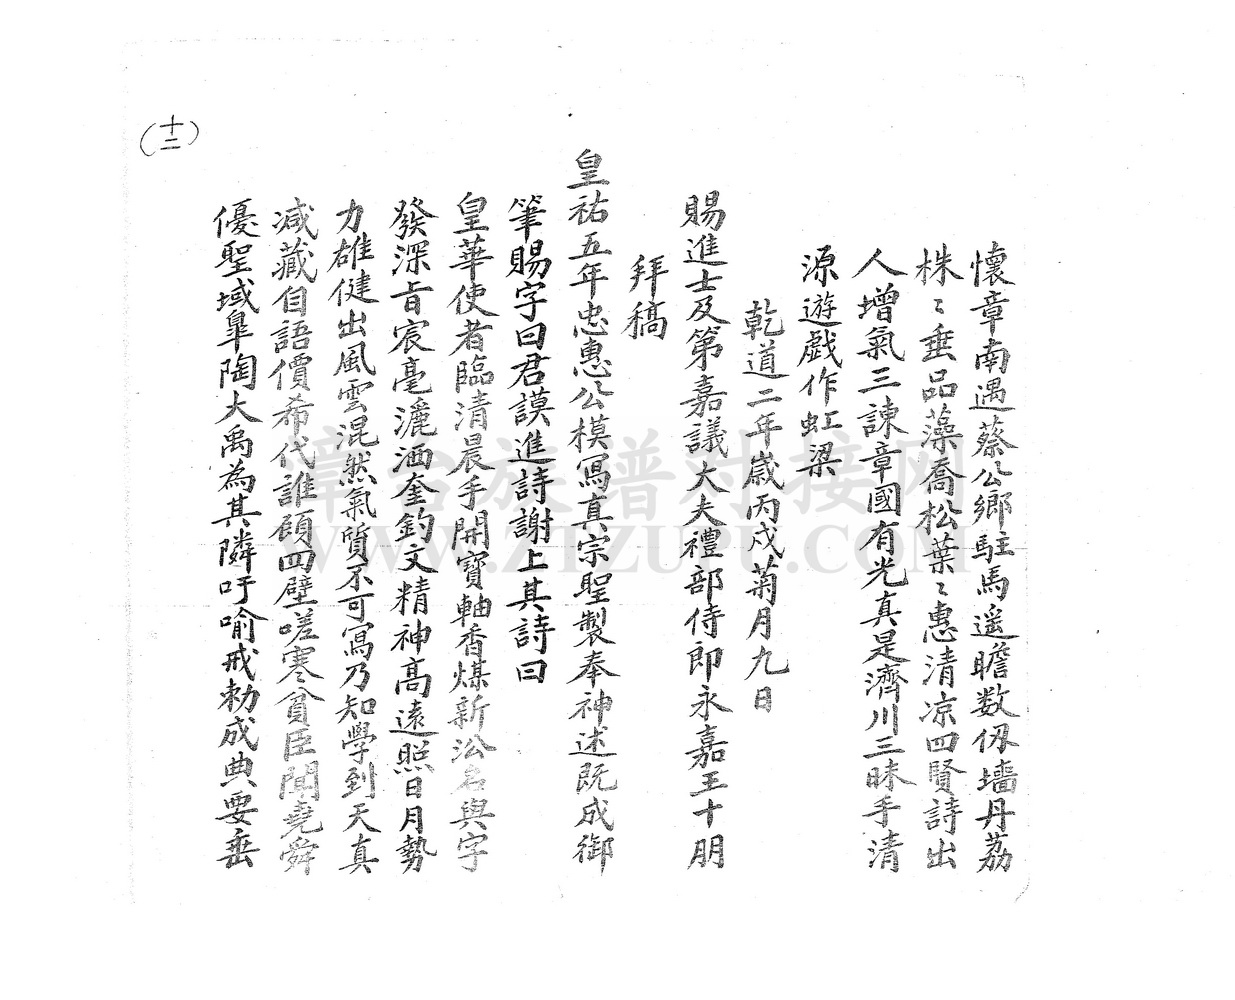 懷章南遇蔡公鄉駐馬遥瞻数仭墻丹荔
株〻垂品藻喬松葉〻惠清凉四賢詩出
人增氣三諫章國有光真是濟川三昧手清
源遊戲作虹梁
乾道二年嵗丙戍菊月九日
賜進士及第嘉議大夫禮部侍郎永嘉王十朋
拜稿
皇祐五年忠惠公模寫真宗聖製奉神述既成御
筆賜字曰君謨進詩謝上其詩曰
皇華使者臨清晨手開寶軸香煤新沿名與字
發深旨宸毫灑洒奎鈞文精神高遠照日月勢
力雄健出風雲混然氣質不可寫乃知學到天真
減藏自語價希代誰顧四壁嗟寒貧臣聞堯舜
優聖域臯陶大禹為其隣吁喻戒勅成典要垂
(十二)
漳台族譜对接网
WWW.ZTZUPU.COM